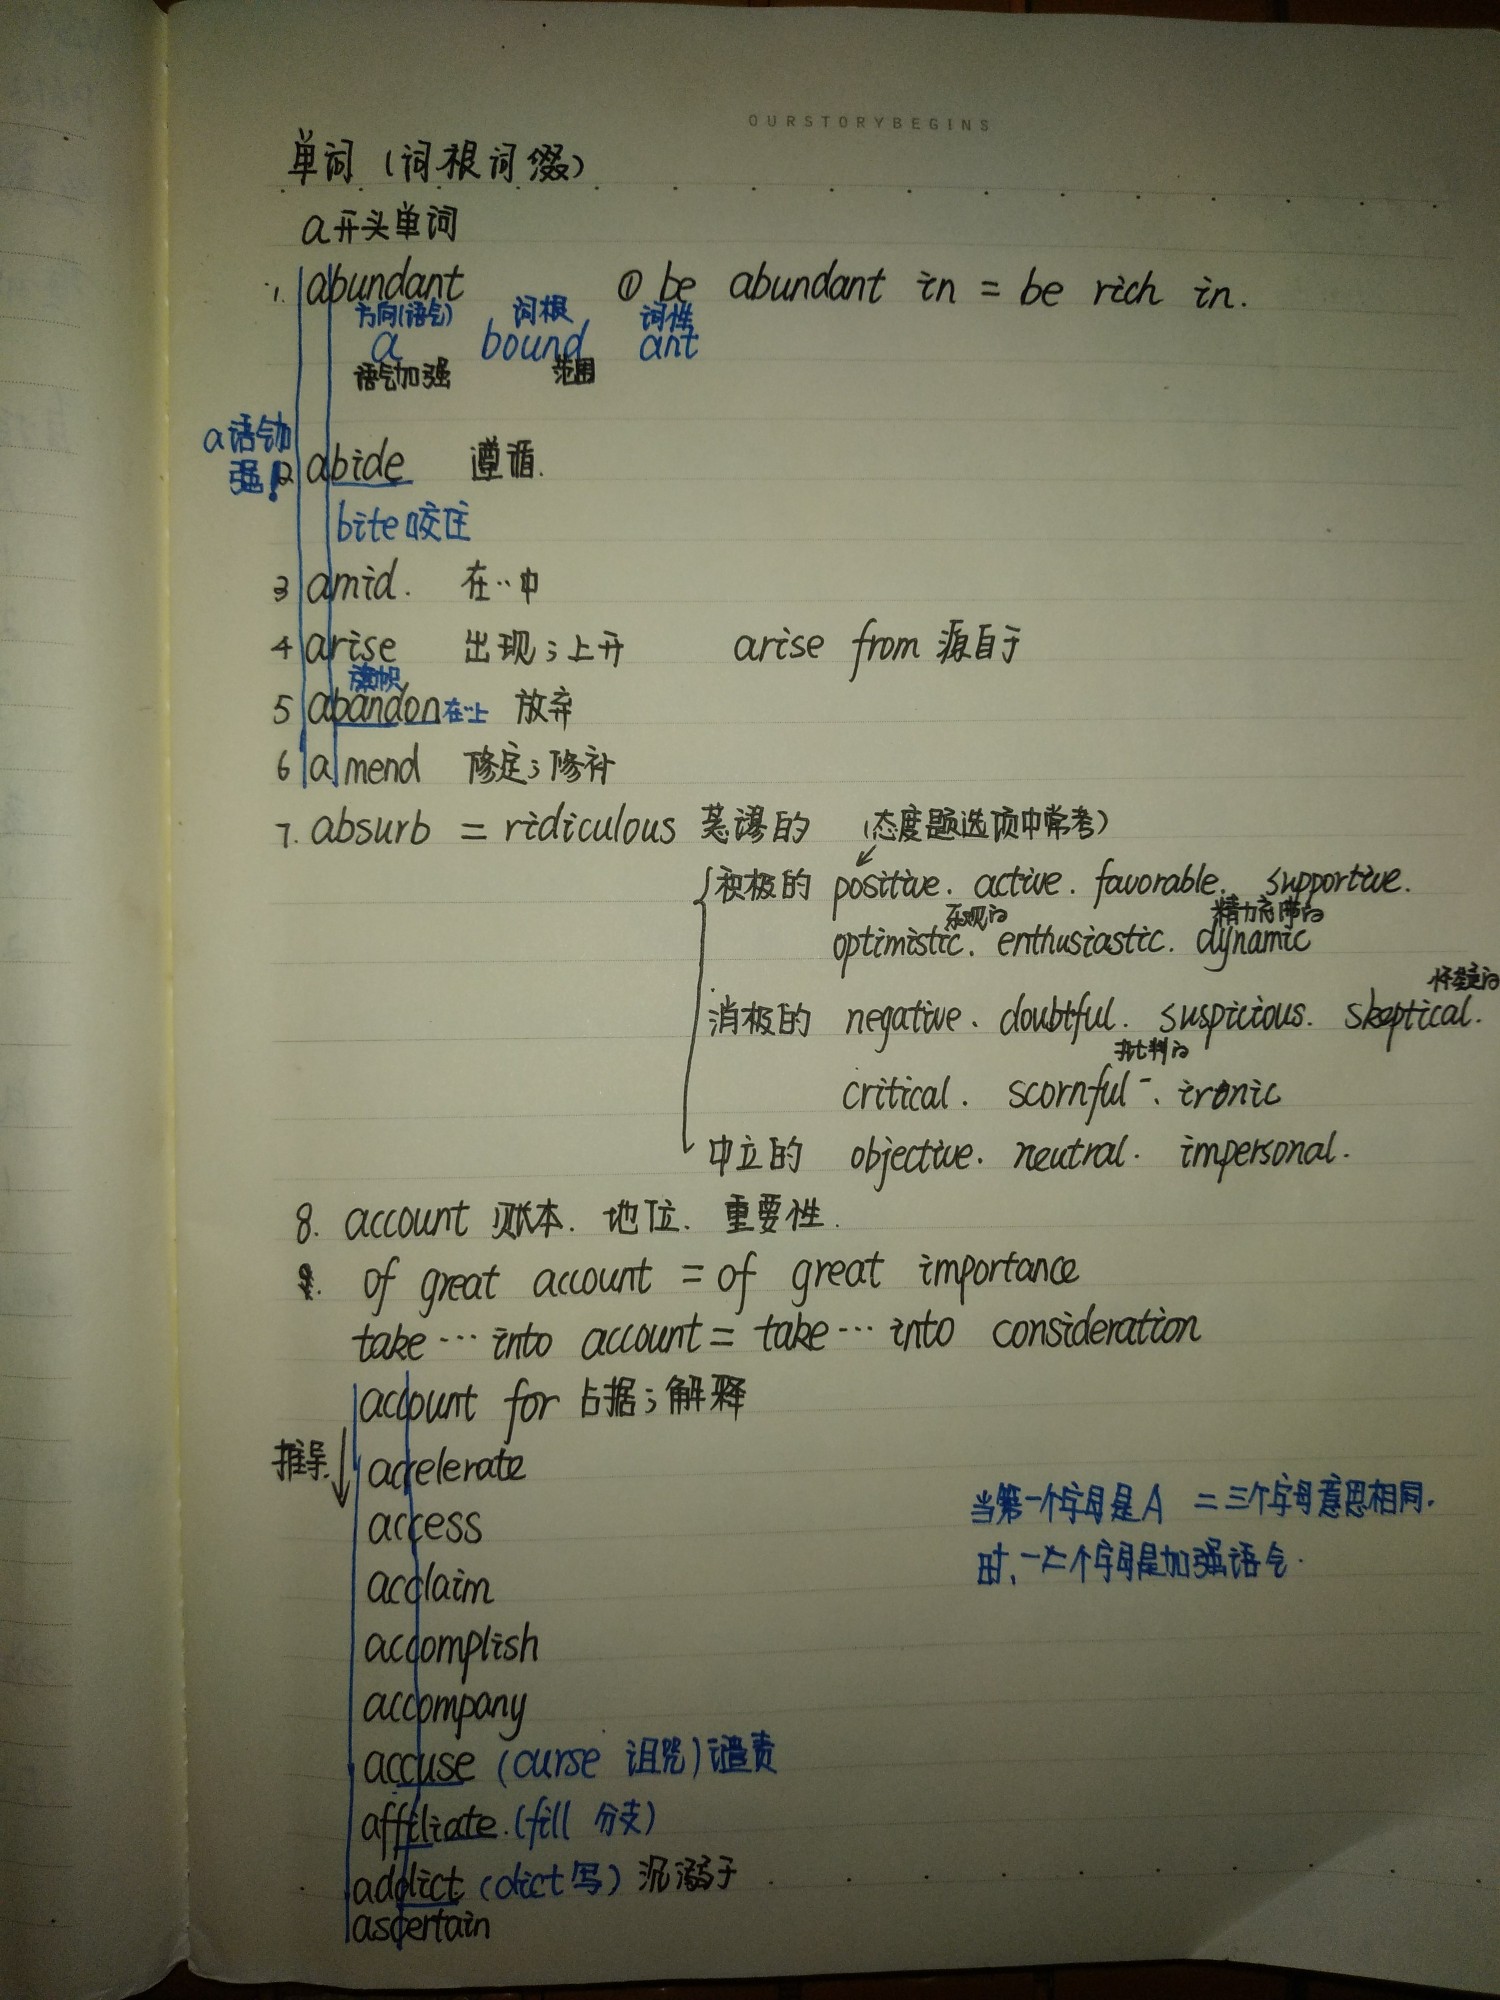 OURSTORYBEGINS
单词（词根词缀）
a开头单词
1. abundant ① be abundant in = be rich in.
方向(语气) 词根 词性
a bound ant
语气加强 范围
a语气加强！
2 abide 遵循.
bite咬住
3 amid. 在…中
4 arise 出现；上升 arise from 源自于
旗帜
5 abandon 在…上 放弃
6 amend 修定；修补
7. absurb = ridiculous 荒谬的 （态度题选项中常考）
积极的 positive. active. favorable. supportive.
乐观的 精力充沛的
optimistic. enthusiastic. dynamic
怀疑的
消极的 negative. doubtful. suspicious. skeptical.
批判的
critical. scornful. ironic
中立的 objective. neutral. impersonal.
8. account 账本. 地位. 重要性.
of great account = of great importance
take … into account = take … into consideration
account for 占据；解释
推导.
accelerate
access
acclaim
accomplish
accompany
accuse (curse 诅咒) 谴责
affiliate. (fill 分支)
addict (dict 写) 沉溺于
ascertain
当第一个字母是A =三个字母意思相同.
时，一二个字母是加强语气.